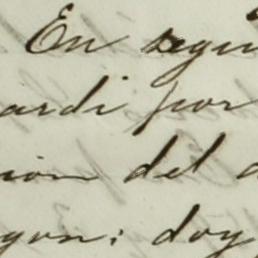 En segui
ardi por
ion del
gon: doy